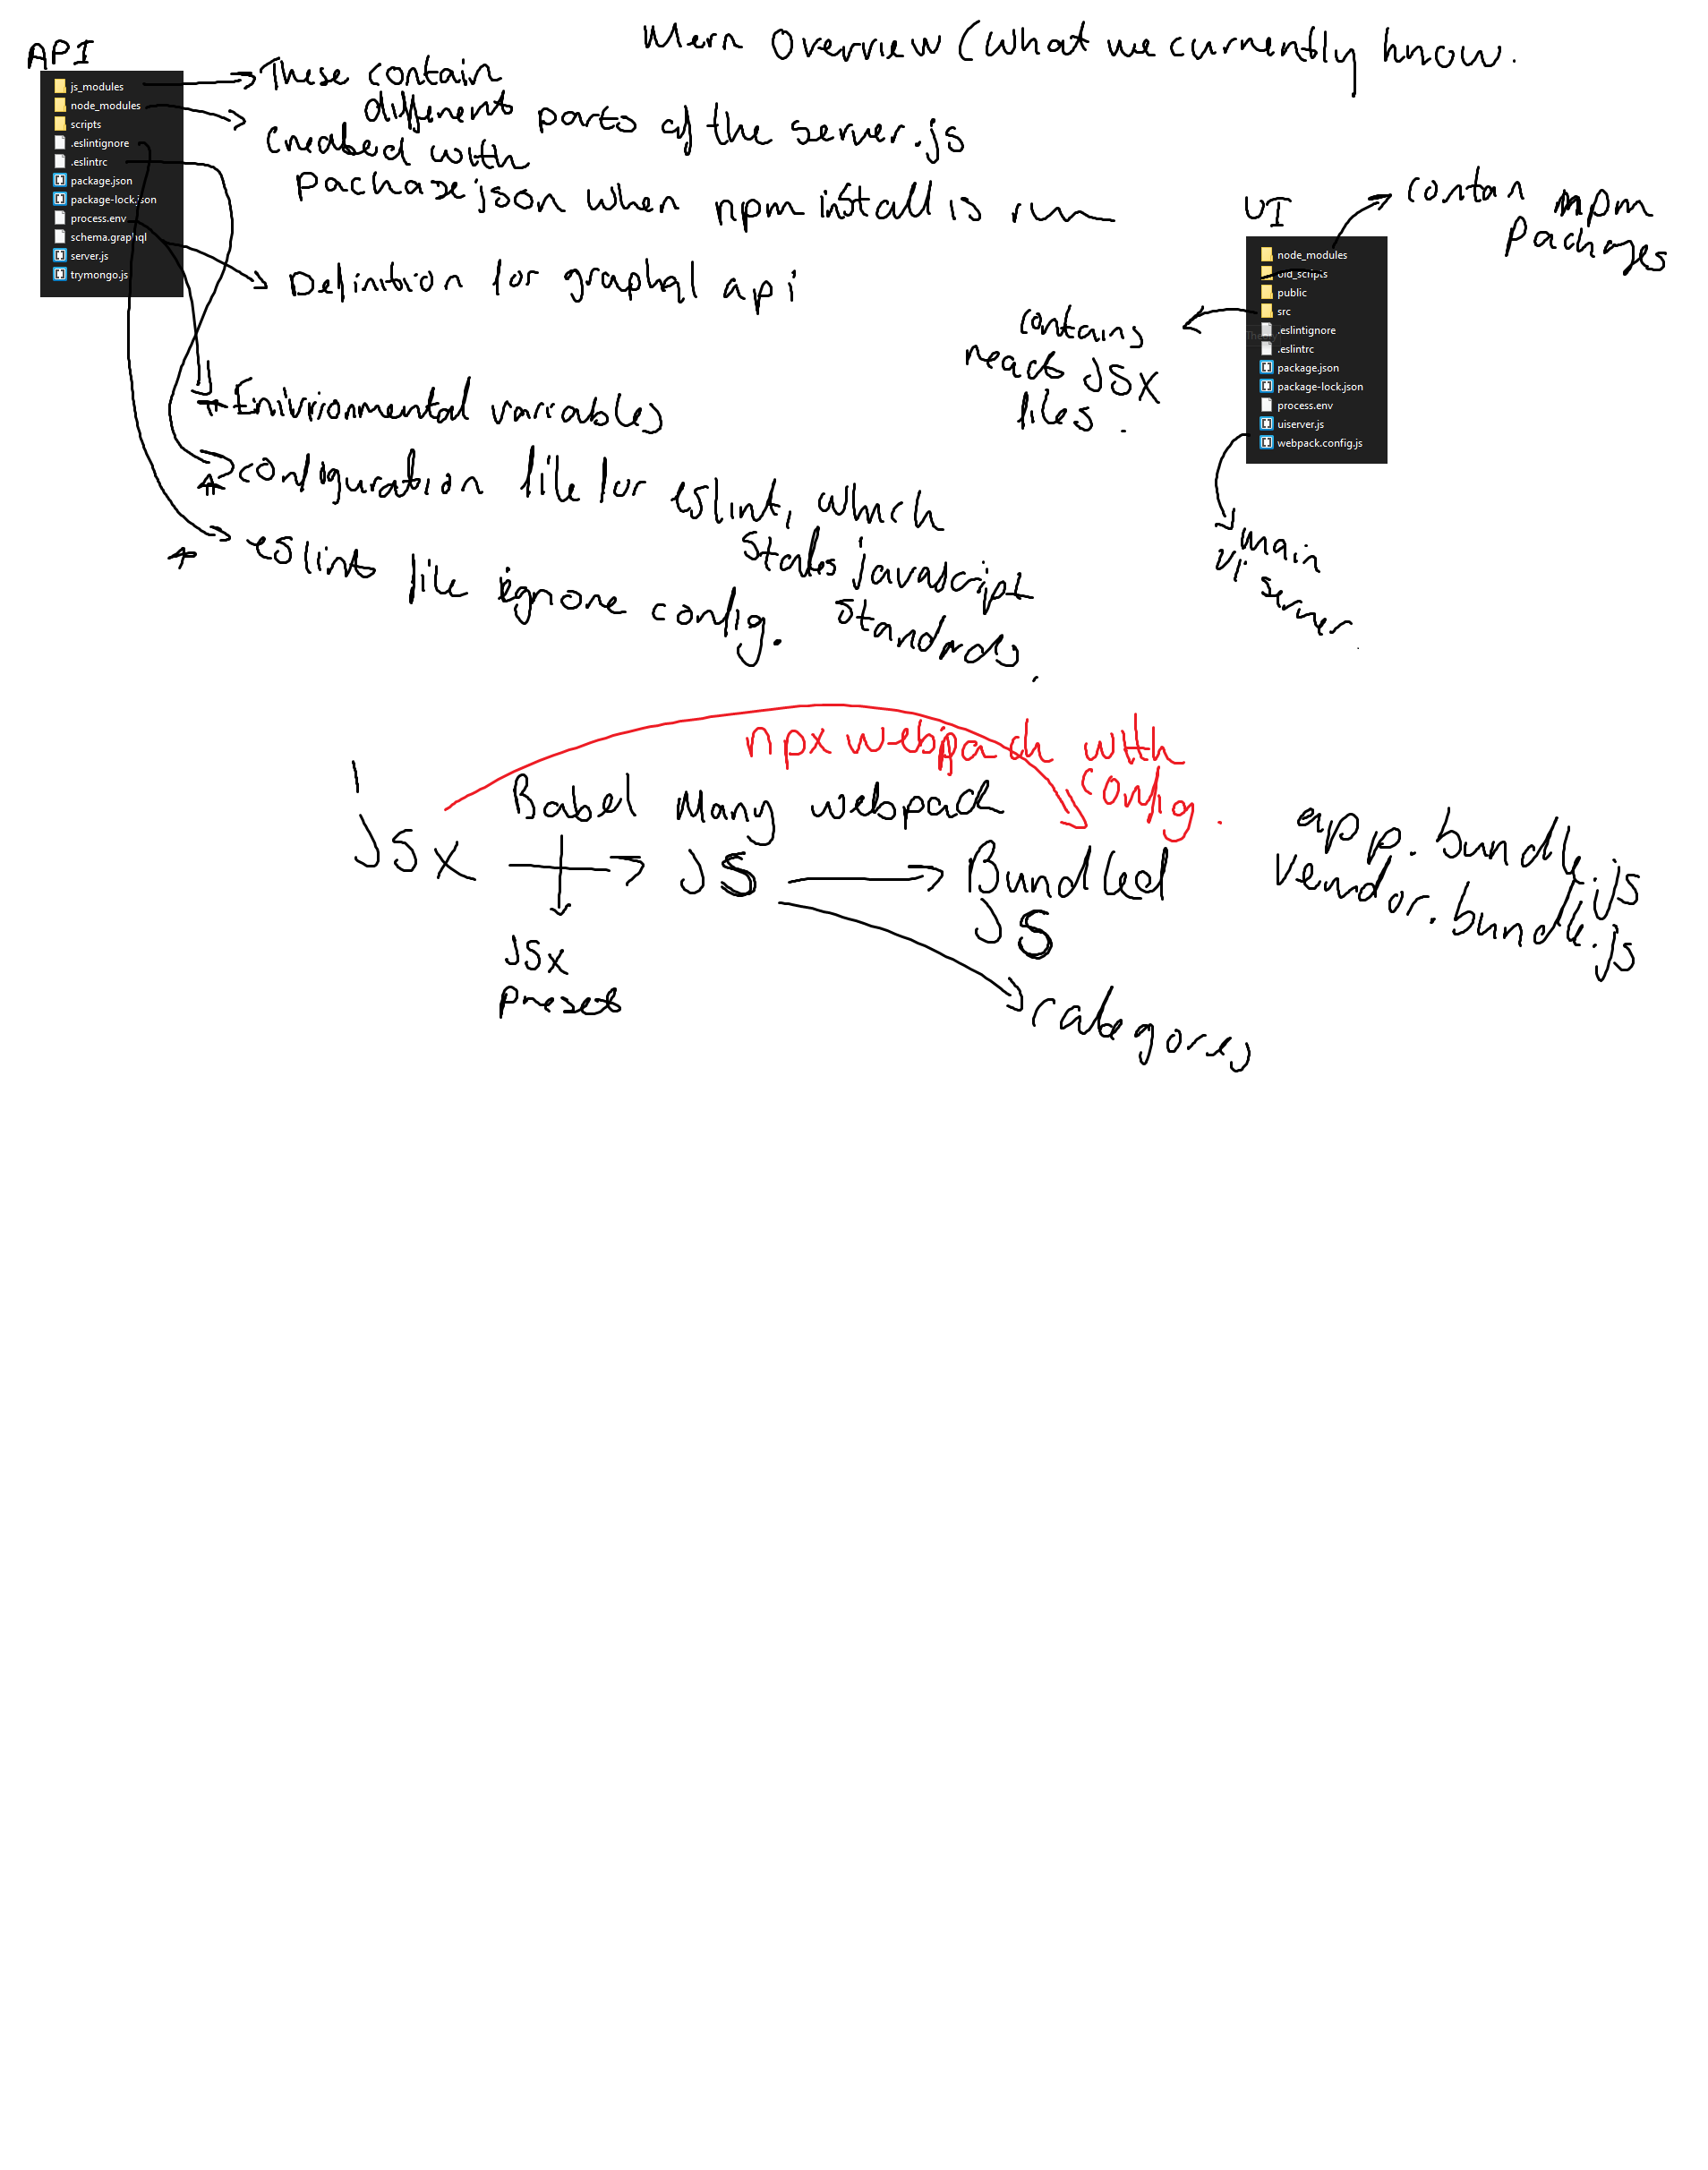 Mern Overview (What we currently know.
API
js_modules
node_modules
scripts
.eslintignore
.eslintrc
package.json
package-lock.json
process.env
schema.graphql
server.js
trymongo.js
These contain
different parts of the server.js
Created with
package json when npm install is run
Definition for graphql api
Enivrionmental variables
configuration file for eslint, which
states javascript
standards.
eslint file ignore config.
UI
node_modules
old_scripts
public
src
.eslintignore
.eslintrc
package.json
package-lock.json
process.env
uiserver.js
webpack.config.js
contan npm
Packages
contains
react JSX
files.
main
UI server
npx webpack with
config.
Babel Many webpack
JSX
JS
Bundled
JS
JSX
preset
categores
app.bundle.js
vendor.bundle.js